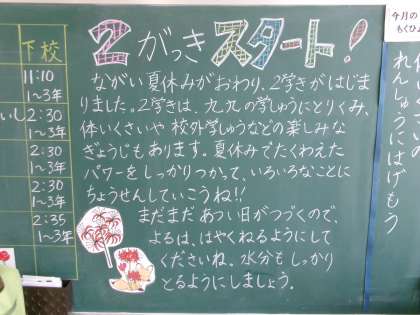 下校
11:10
1〜3年
2:30
1〜3年
2:30
1〜3年
2:30
1〜3年
2:35
1〜3年
2がっきスタート!
ながい夏休みがおわり、2学きがはじま
りました。2学きは、九九の学しゅうにとりくみ、
体いくさいや校外学しゅうなどの楽しみな
ぎょうじもあります。夏休みでたくわえた
パワーをしっかりつかって、いろいろなことに
ちょうせんしていこうね!!
まだまだあつい日がつづくので、
よるは、はやくねるようにして
くださいね。水分もしっかり
とるようにしましょう。
今月の
もくひょ
れんしゅうにはげもう